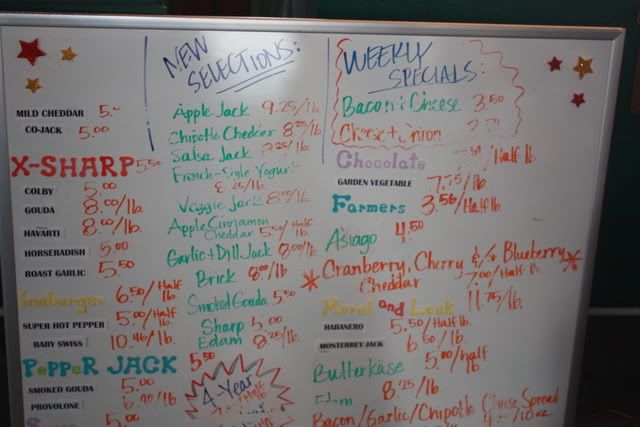 MILD CHEDDAR 5.
CO-JACK 5.00
X-SHARP 5.50
COLBY 5.00
GOUDA 8.00/lb.
HAVARTI 8.00/lb.
HORSERADISH 5.00
ROAST GARLIC 5.50
6.50/Half lb.
SUPER HOT PEPPER 5.00/Half lb.
BABY SWISS 10.46/lb.
PePPeR JACK 5.50
SMOKED GOUDA 5.00
PROVOLONE /lb.
5.00
NEW SELECTIONS:
Apple Jack 9.25/lb.
Chipotle Cheddar 8.25/lb.
Salsa Jack 8.25/lb.
French-Style Yogurt
8.25/lb.
Veggie Jack 8.00/lb
Apple Cinnamon Cheddar 5.50/Half lb
Garlic + Dill Jack 8.00/lb
Brick 8.00/lb
Smoked Gouda 5.50
Sharp 5.00
Edam 8.25/lb.
4-Year
/Half lb
WEEKLY SPECIALS:
Bacon + Cheese 3.50
Cheese + Onion
Chocolate /Half lb
GARDEN VEGETABLE 7.75/lb.
Farmers 3.56/Half lb
Asiago 4.50
* Cranberry, Cherry &/or Blueberry *
Cheddar 7.00/Half lb.
Morel and Leek 11.75/lb.
HABANERO 5.50/Half lb.
MONTERREY JACK 6.60/lb.
Butterkäse 5.00/half lb
Edam 8.25/lb.
Bacon/Garlic/Chipotle Cheese Spread
/10 oz.